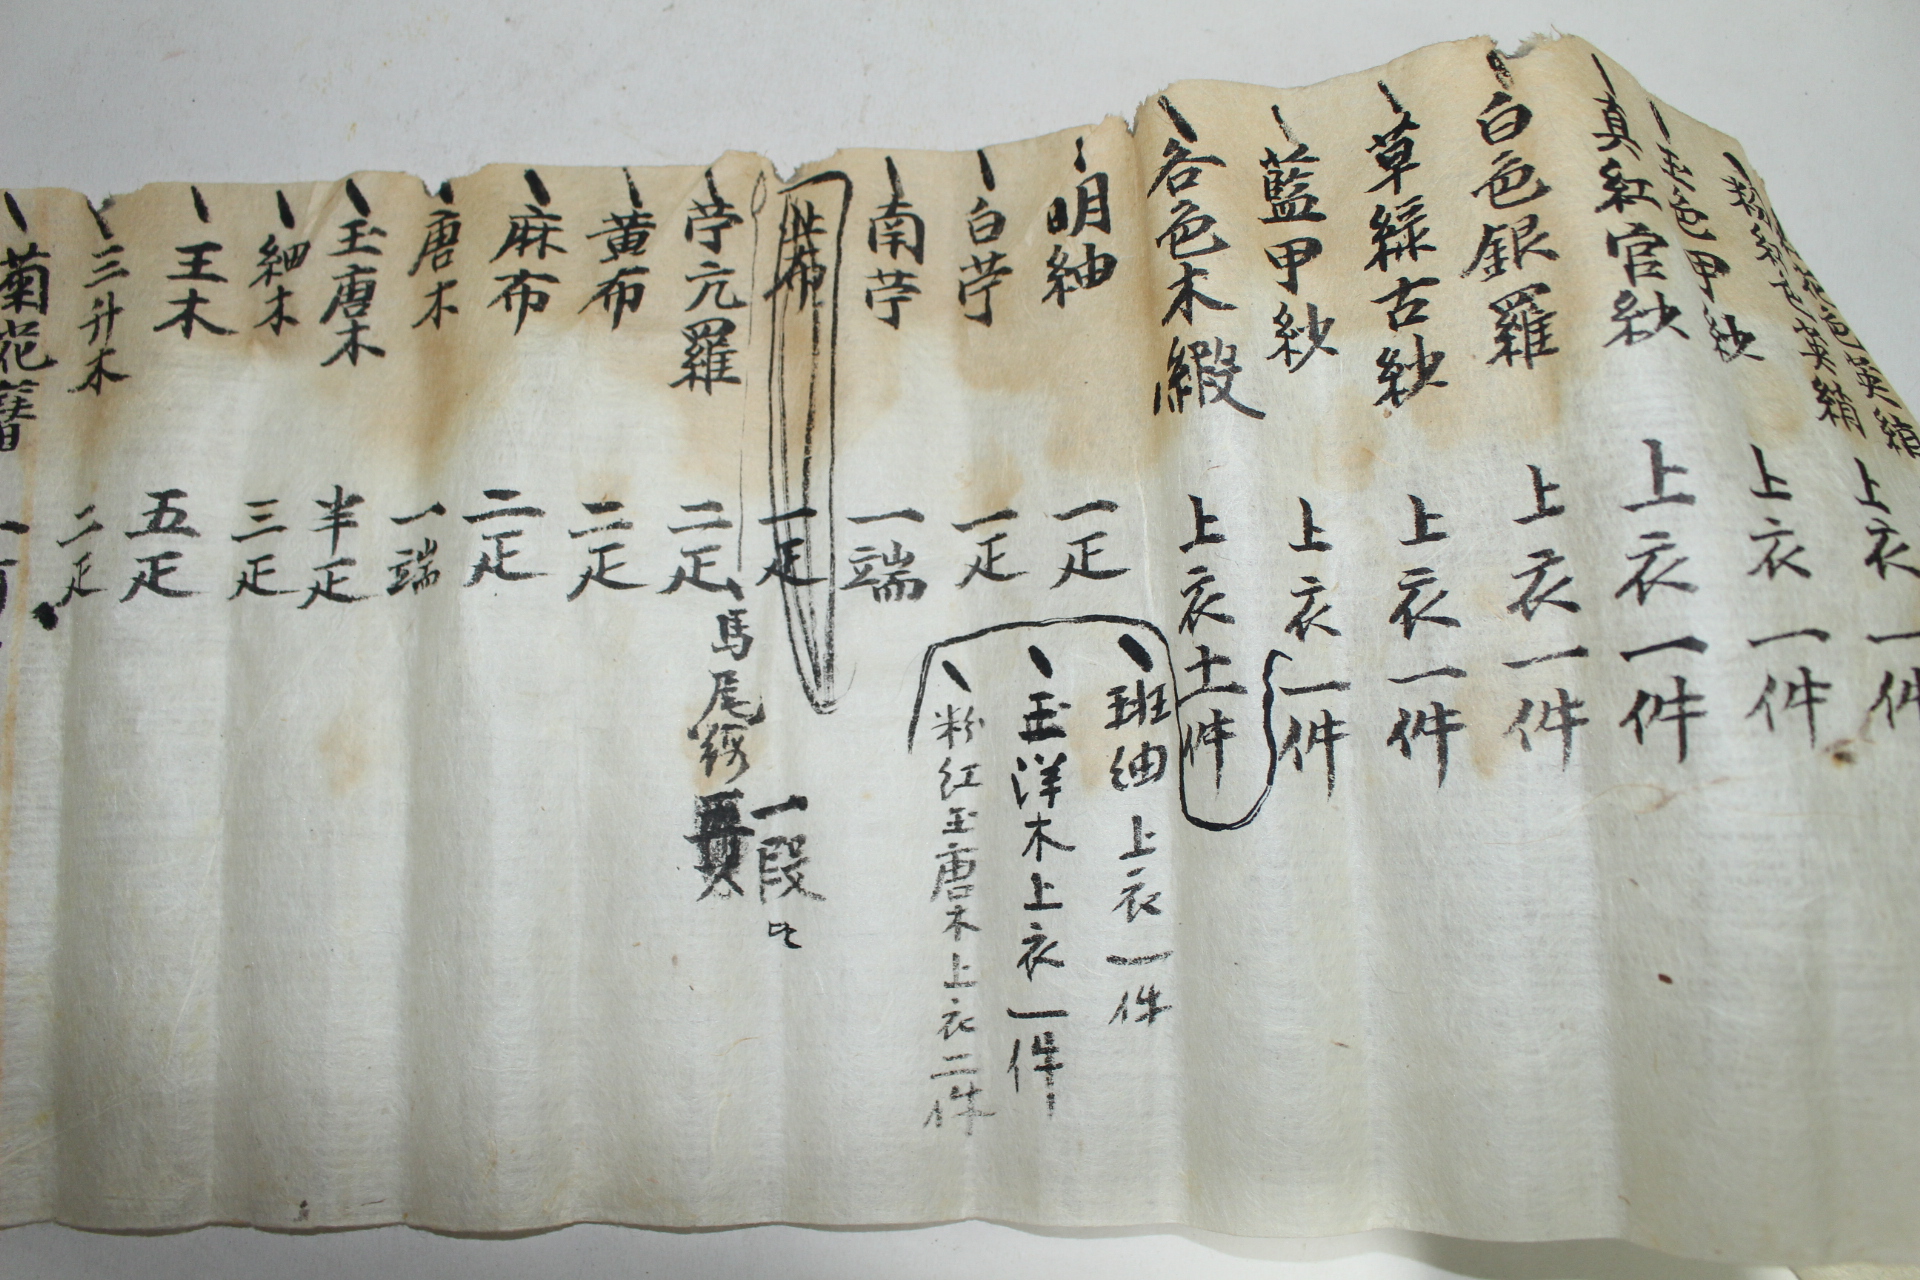 色英綃
粉紅色英綃 上衣一件
玉色甲紗 上衣一件
真紅官紗 上衣一件
白色銀羅 上衣一件
草綠古紗 上衣一件
藍甲紗 上衣一件
各色木緞 上衣十一件
班紬上衣一件
玉洋木上衣一件
粉紅玉唐木上衣二件
明紬 一疋
白苧 一疋
南苧 一端
北布 一疋
苧亢羅 二疋
馬尾
一段
黃布 二疋
麻布 二疋
唐木 一端
玉唐木 半疋
細木 三疋
王木 五疋
三升木 二疋
菊花